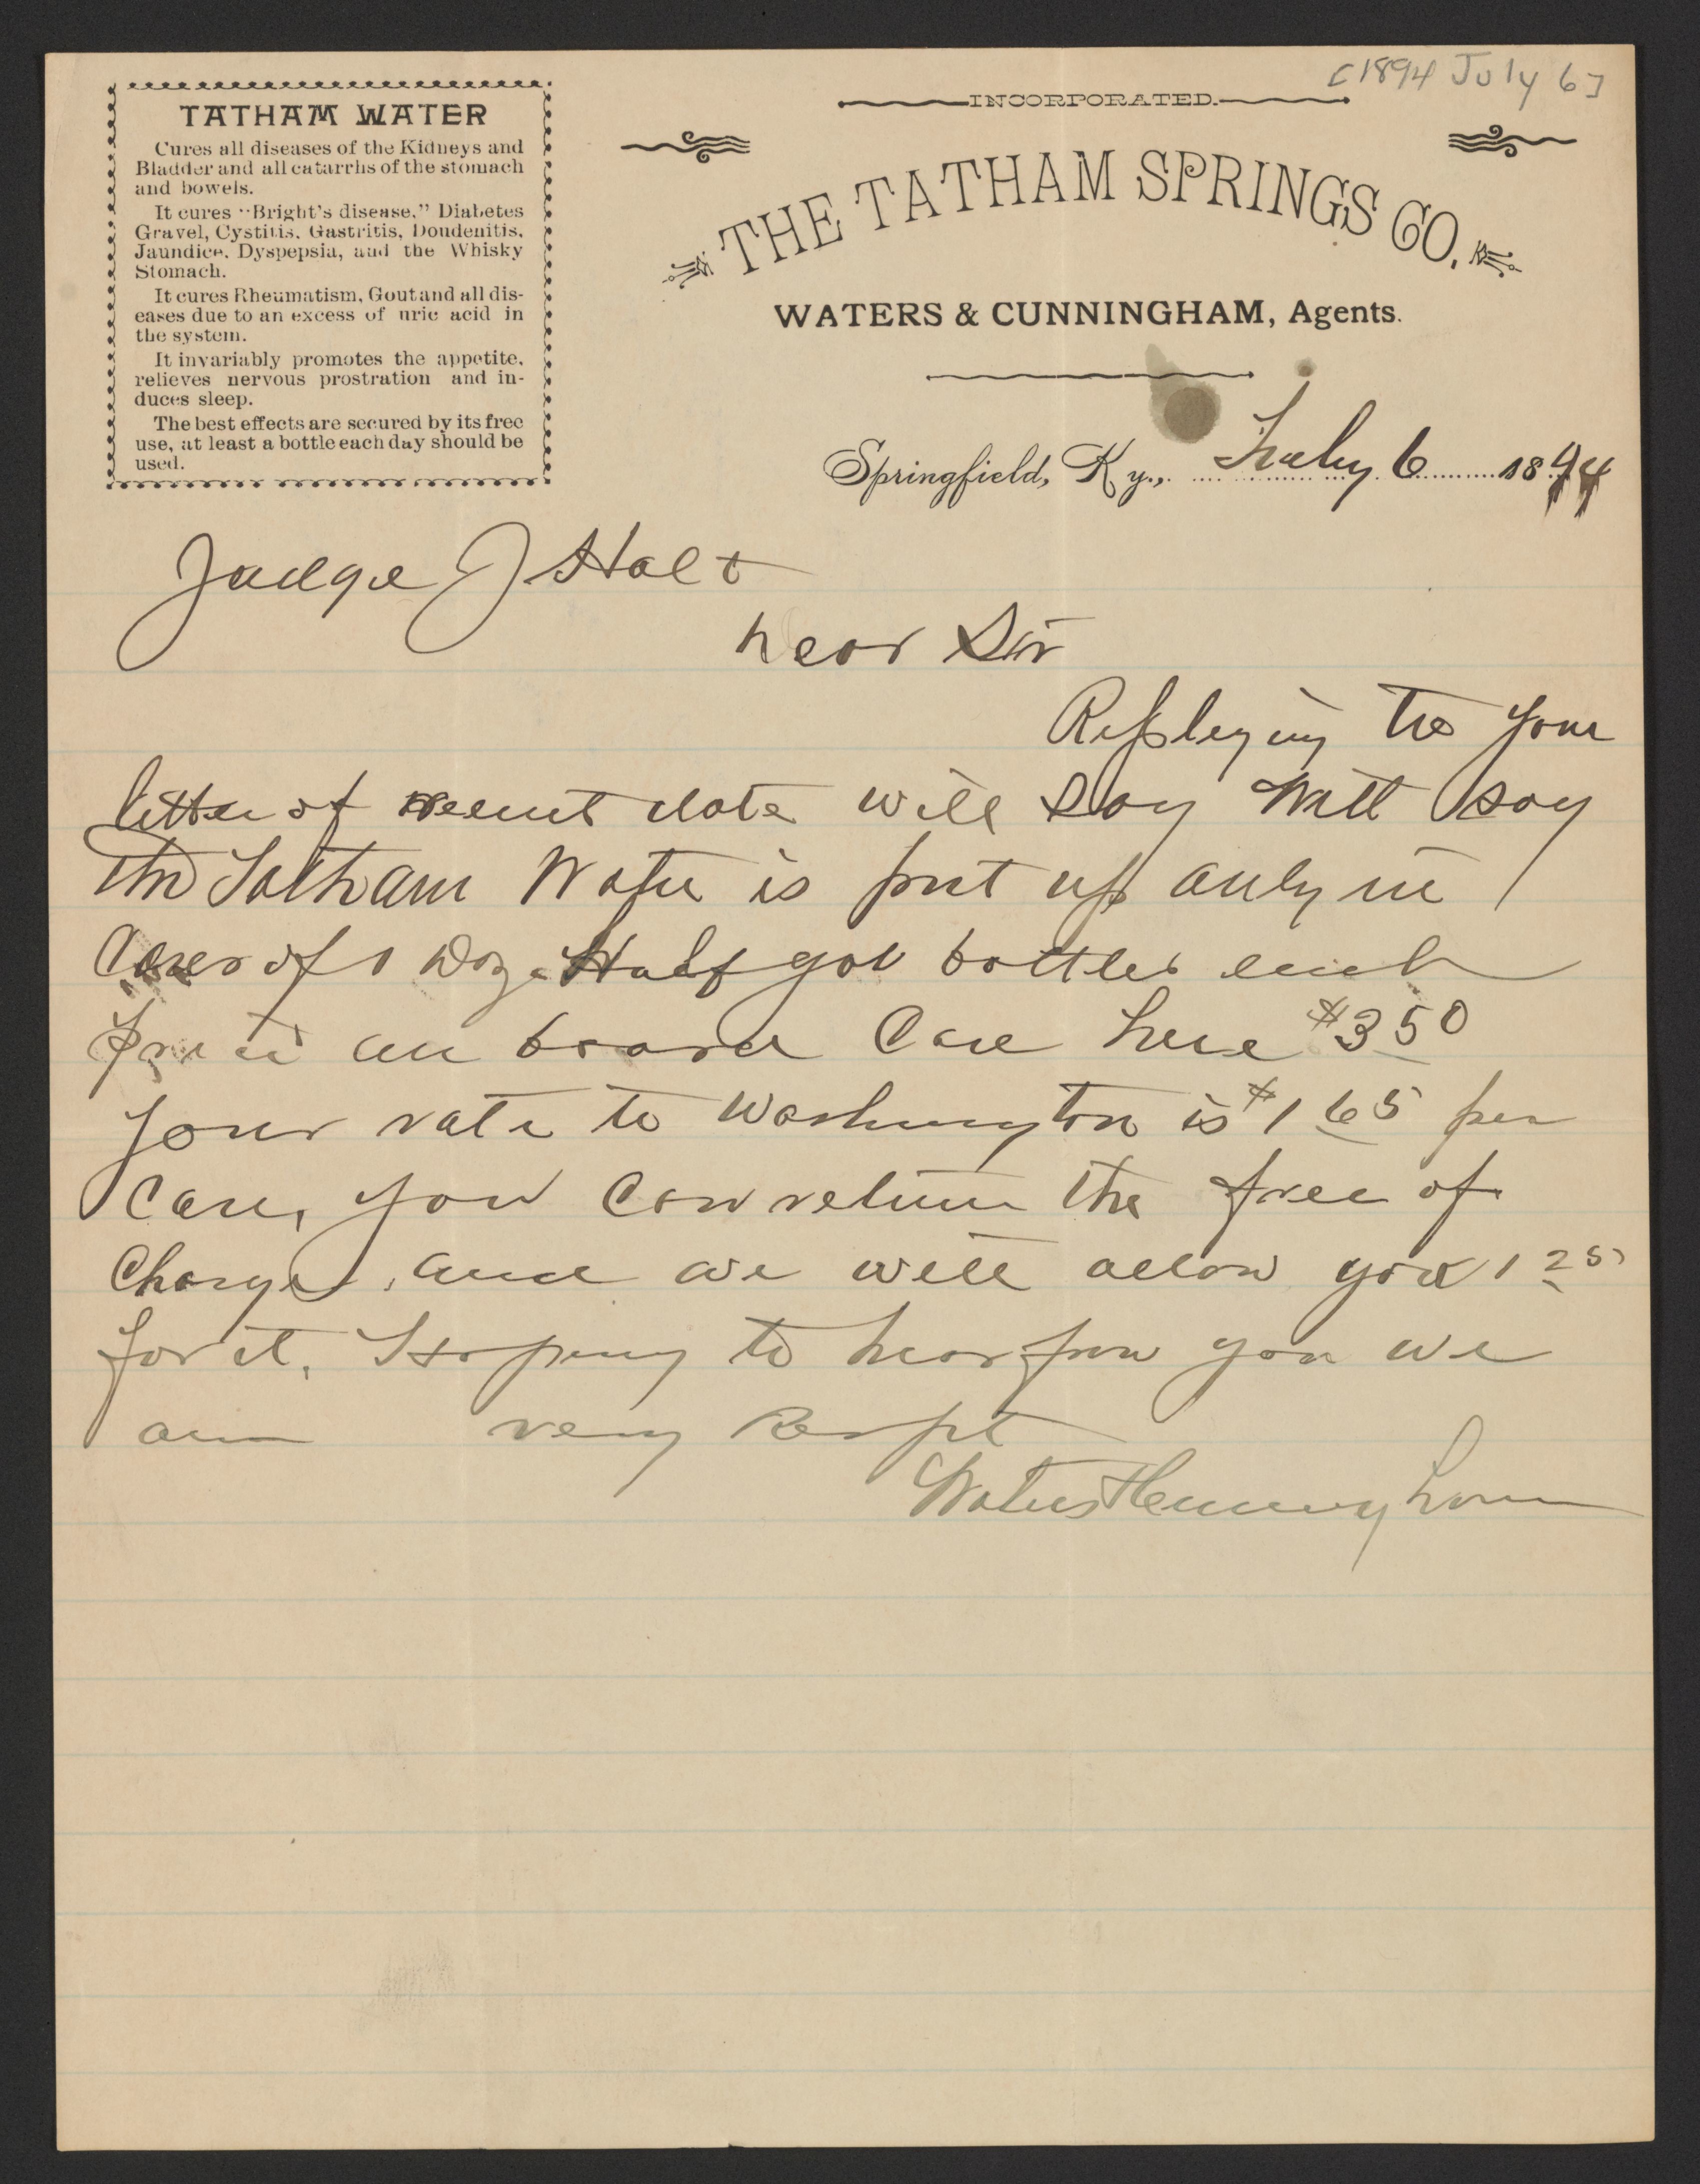 [1894 July 6]
INCORPORATED.
THE TATHAM SPRINGS CO.
WATERS & CUNNINGHAM, Agents.
TATHAM WATER
Cures all diseases of the Kidneys and
Bladder and all catarrhs of the stomach
and bowels.
It cures "Bright's disease," Diabetes
Gravel, Cystitis, Gastritis, Doudenitis,
Jaundice, Dyspepsia, and the Whisky
Stomach.
It cures Rheumatism, Gout and all dis-
eases due to an excess of uric acid in
the system.
It invariably promotes the appetite,
relieves nervous prostration and in-
duces sleep.
The best effects are secured by its free
use, at least a bottle each day should be
used.
Springfield, Ky., July 6 1894
Judge J Holt
Dear Sir
Replying to your
letter of recent date will say will say
the Tatham Water is put up only in
Cases of 1 Doz Half gal bottles each
price on board Care here $3 50
your rate to Washington is $1 65 per
Case, you can return the free of
Charge, and we will allow you 1 25
for it. Hoping to hear from you we
am very Respt
Waters & Cunningham